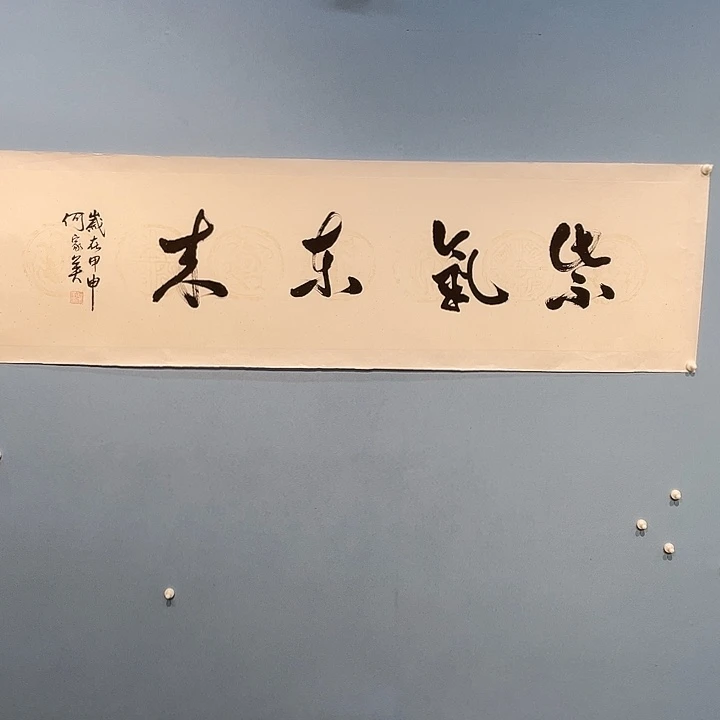 紫氣東来
歲在甲申
何家英